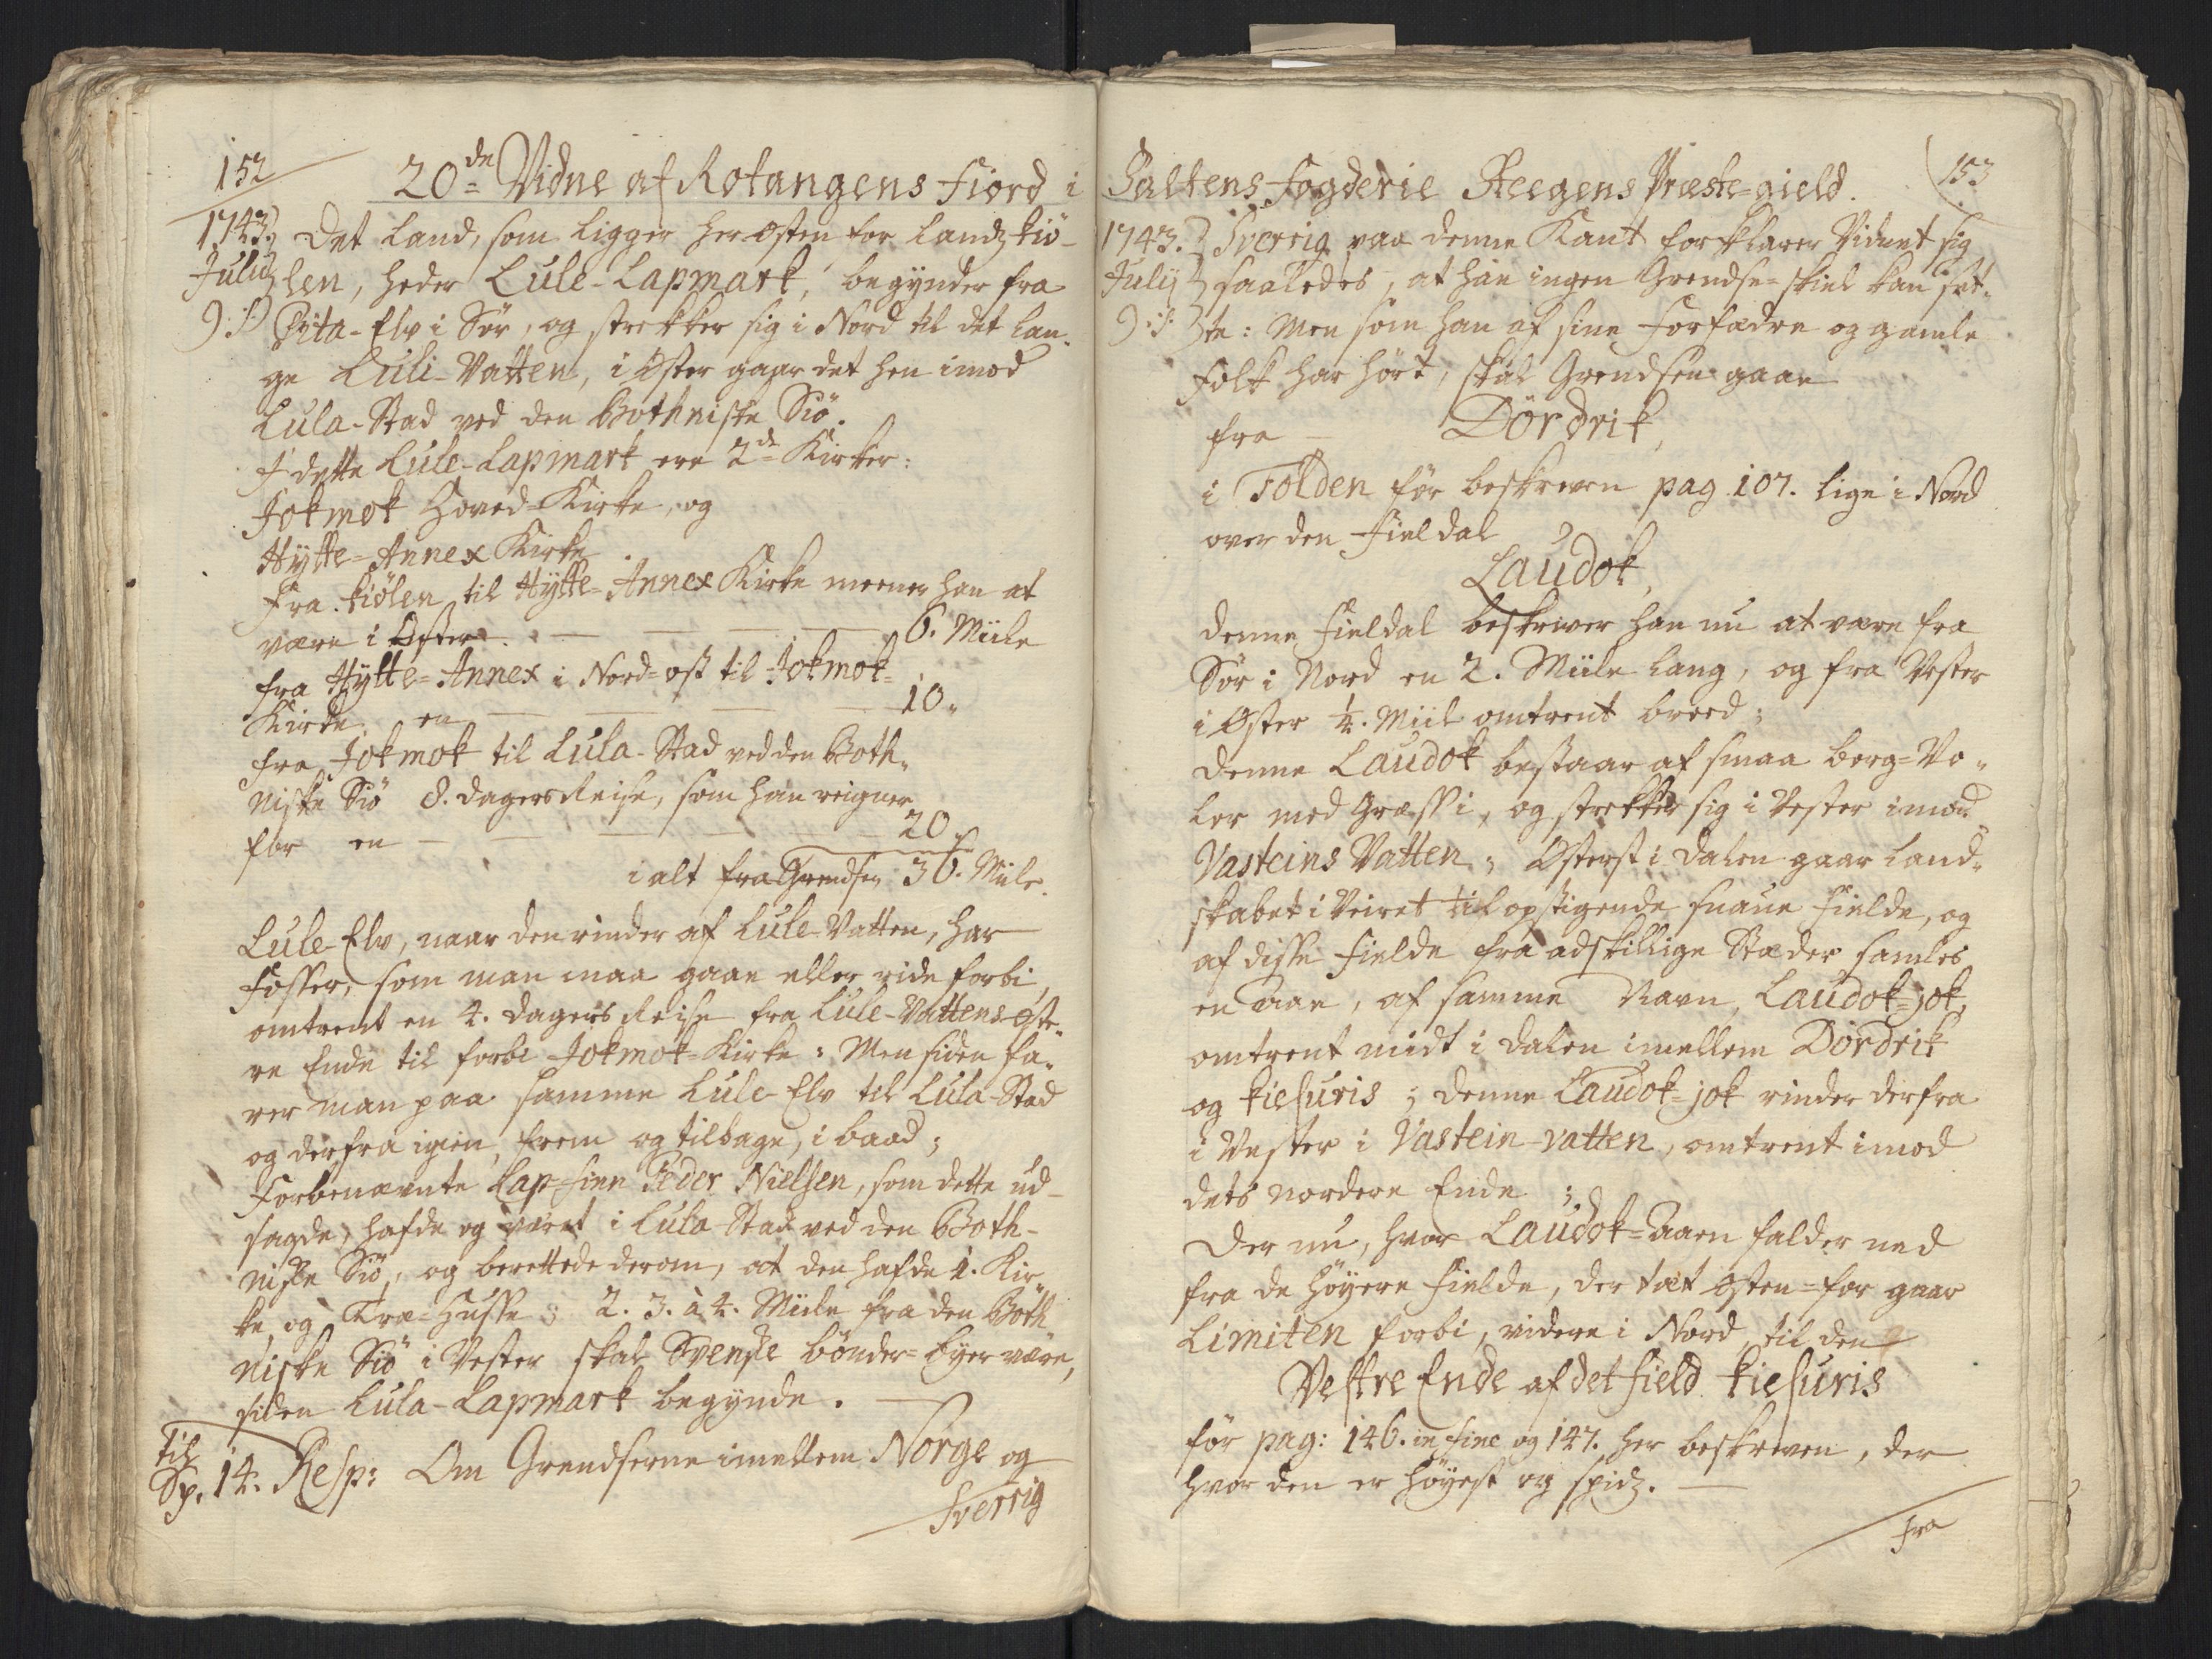 152
20de Vidne af Rotangens Fiord i
1743. Det Land, som ligger her østen for Landz kiö-
Julij len, heder Lule-Lapmark, begynder fra
9: Pita-Elv i Sör, og strekker sig i Nord til det Lan-
ge Luli-Vatten, i Öster gaar det hen imod
Lula-Stad ved den Bothniske Siö.
I dette Lule-Lapmark ere 2de Kirker:
Jokmok Hoved-Kirke, og
Hytte-Annex Kirke.
Fra kiölen til Hytte-Annex Kirke meener han at
være i Öster — — — — 6. Miile
fra Hytte-Annex i Nord-ost til Jokmok-
Kirke en — — — — 10.
fra Jokmok til Lula-Stad ved den Both-
niske Siö 8. dagers Reise, som han reigner
for en — — — — 20.
i alt fra Grendsen 36. Miile.
Lule-Elv, naar den rinder af Lule-Vatten, har
Fosser, som man maa gaae eller ride forbi,
omtrent en 4. dagers Reise fra Lule-Vattens Öste-
re Ende til forbi Jokmok-Kirke: Men siden fa-
rer man paa samme Lule-Elv til Lula-Stad
og derfra igien, frem og tilbage, i baad;
Forbenævnte Lap-Finn Peder Nielsen, som dette ud-
sagde, hafde og været i Lula-Stad ved den Both-
niske Siö, og berettede derom, at den hafde 1. Kir-
ke, og Træ-Husse; 2. 3. à 4. Miile fra den Both
niske Siö i Vester skal Svenske bönder-byer være,
siden Lula-Lapmark begynde.
Til
Sp. 14. Resp: Om Grendserne imellem Norge og
Sverrig
153
Saltens Fogderie Steegens Præste-gield.
1743. Sverrig paa denne Kant forklarer Vidnet sig
Julij saaledes, at han ingen Grendse-skiel kan sæt-
9: te: Men som han af sine Forfædre og gamle
Folk har hört, skal Grendsen gaae
fra — Dördrik,
i Folden för beskreven pag. 107. lige i Nord
over den Fieldal
Laudok,
denne Fieldal beskriver han nu at være fra
Sör i Nord en 2. Miile lang, og fra Vester
i Öster ¼. Miil omtrent breed;
denne Laudok bestaar af smaa berg-Vo-
ler med Græss i, og strekker sig i Vester imod
Vasteins Vatten; Österst i dalen gaar Land-
skabet i Veiret til opstigende snaue Fielde, og
af disse Fielde fra adskillige Stæder samles
en Aae, af samme Navn, Laudok-jok,
omtrent midt i dalen imellem Dördrik
og kiesuris; denne Laudok-jok rinder derfra
i Vester i Vastein-vatten, omtrent imod
dets nordere Ende;
Der nu, hvor Laudok-Aaen falder ned
fra de höyere Fielde, der tæt östen-for gaar
Limiten forbi, videre i Nord, til den
Vestre Ende af det Field kiesuris
för pag: 146. in fine og 147. her beskreven, der
hvor den er höyest og spidz. —
fra